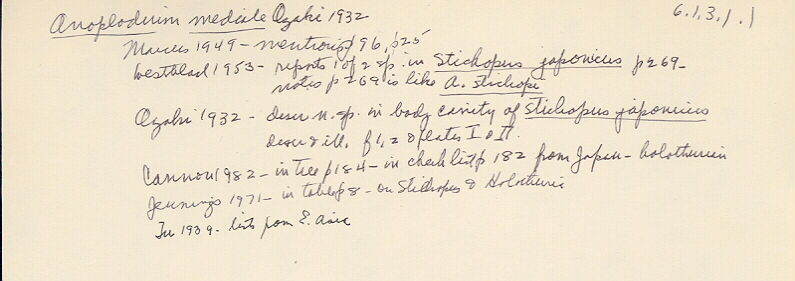 Anoplodium mediale Ozaki 1932 6.1.3.1.1
Marcus 1949 - mentions p 96, p25
Westblad 1953 - reports 1 of 2 sp. in Stichopus japonicus p269 -
notes p 269 is like A. stichopi
Ozaki 1932 - descr n. sp. in body cavity of Stichopus japonicus
descr & ill, f 1, 2 & plates I & II.
Cannon 1982 - in tree p184 - in check list p 182 from Japan - holothurian
Jennings 1971 - in table p8 - on Stichopus & Holothuria
1939 - lists from E. Asia